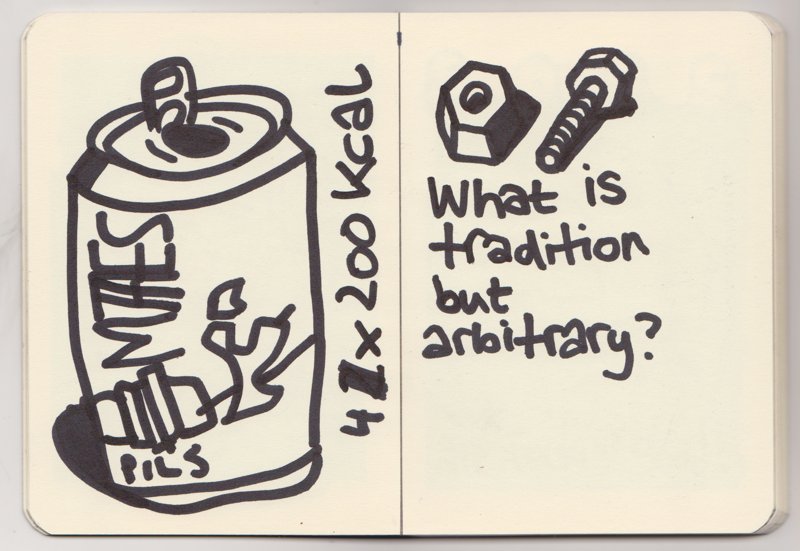 PILS
4 x 200 kcal
What is
tradition
but
arbitrary?